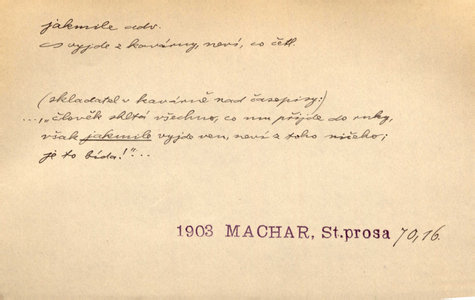 jakmile adv.
co vyjde z kavárny, neví, co četl.
(skladatel v kavárně nad časopisy:)
...„člověk shltá všechno, co mu přijde do ruky,
však jakmile vyjde ven, neví z toho ničeho;
je to bída!"...
1903 MACHAR, St.prosa 70,16.